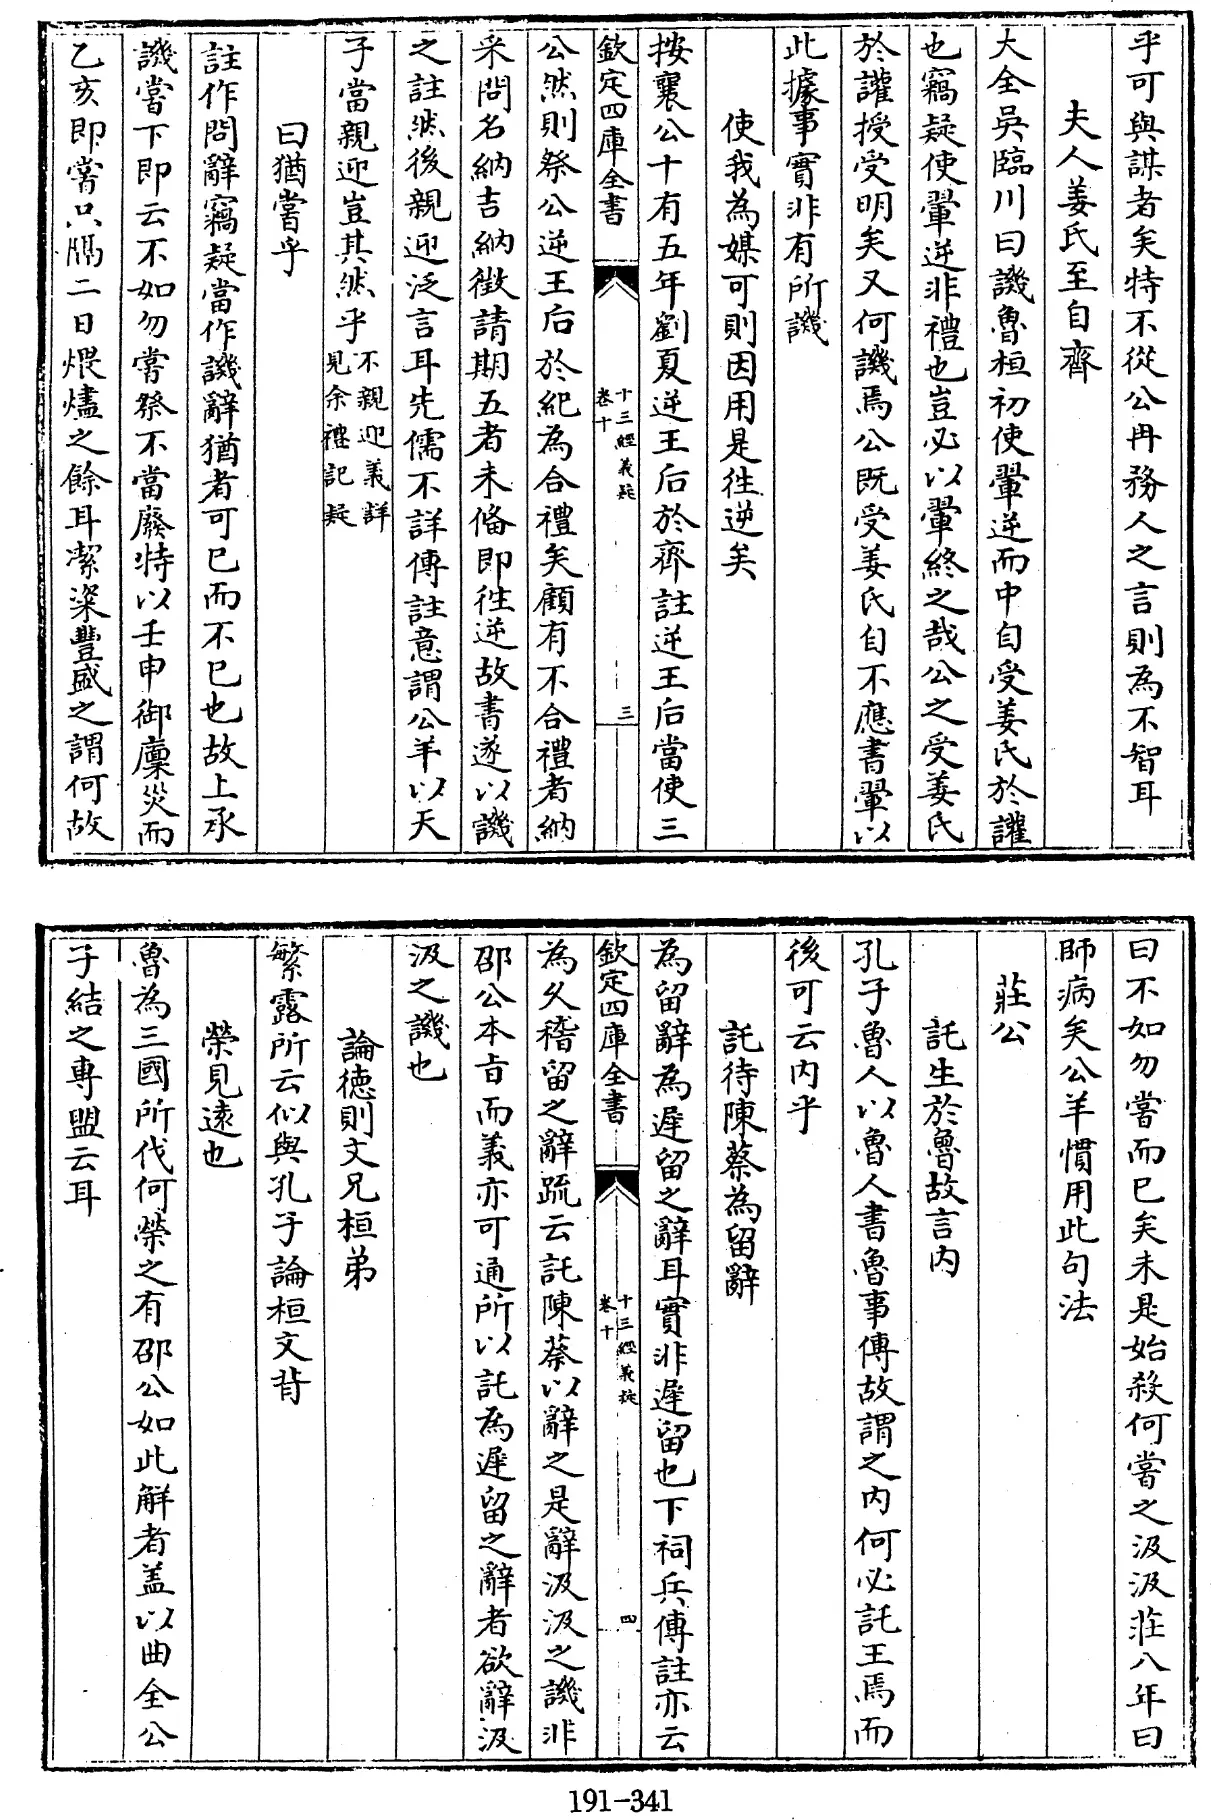 乎可與謀者矣特不從公冉務人之言則為不智耳
夫人姜氏至自齊
大全吳臨川曰譏魯桓初使翬逆而中自受姜氏於讙
也竊疑使翬逆非禮也豈必以翬終之哉公之受姜氏
於讙授受明矣又何譏焉公既受姜氏自不應書翬以
此據事實非有所譏
使我為媒可則因用是往逆矣
按襄公十有五年劉夏逆王后於齊註逆王后當使三
欽定四庫全書
十三經義疑
卷十
三
公然則祭公逆王后於紀為合禮矣顧有不合禮者納
采問名納吉納徵請期五者未備即往逆故書遂以譏
之註然後親迎泛言耳先儒不詳傳註意謂公羊以天
子當親迎豈其然乎不親迎義詳
見余禮記疑
曰猶嘗乎
註作問辭竊疑當作譏辭猶者可已而不已也故上承
譏嘗下即云不如勿嘗祭不當廢特以壬申御廩災而
乙亥即嘗只隔二日煨燼之餘耳潔粢豐盛之謂何故
曰不如勿嘗而已矣未是始殺何嘗之汲汲莊八年曰
師病矣公羊慣用此句法
莊公
託生於魯故言内
孔子魯人以魯人書魯事傳故謂之内何必託王焉而
後可云内乎
託待陳蔡為留辭
為留辭為遲留之辭耳實非遲留也下祠兵傳註亦云
欽定四庫全書
十三經義疑
卷十
四
為久稽留之辭疏云託陳蔡以辭之是辭汲汲之譏非
邵公本旨而義亦可通所以託為遲留之辭者欲辭汲
汲之譏也
論德則文兄桓弟
繁露所云似與孔子論桓文背
榮見遠也
魯為三國所伐何榮之有邵公如此解者盖以曲全公
子結之專盟云耳
191-341